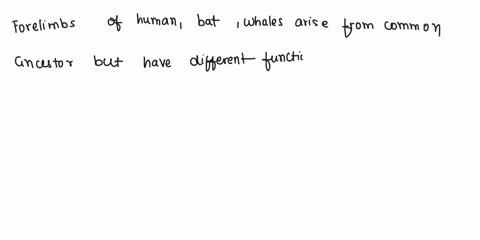 Forelimbs of human, bat, whales arise from common
ancestor but have different functi